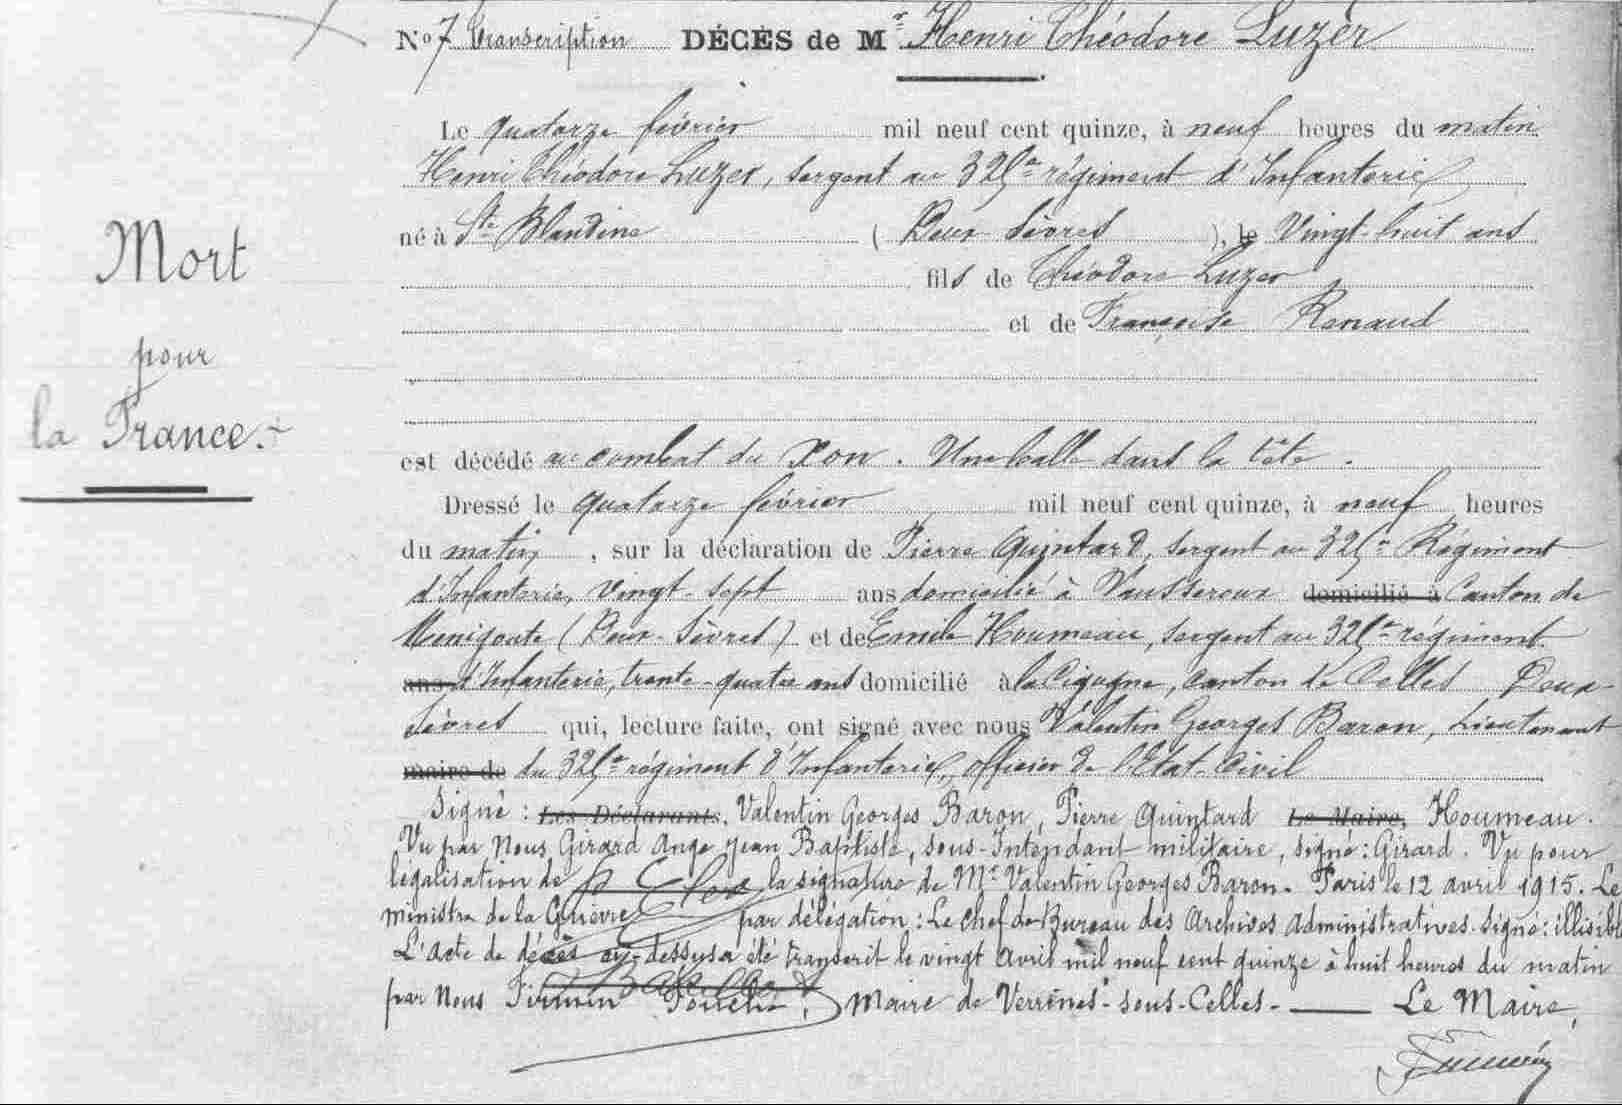 No 7 Transcription DÉCÈS de Mr Henri Théodore Luzer
Le quatorze février mil neuf cent quinze, à neuf heures du matin
Henri Théodore Luzer, sergent au 325e régiment d'Infanterie
né à Ste Blandine (Deux Sèvres), le Vingt-huit ans
fils de Théodore Luzer
et de Françoise Renaud
Mort
pour
la France.
est décédé au combat du Xon. Une balle dans la tête.
Dressé le quatorze février mil neuf cent quinze, à neuf heures
du matin, sur la déclaration de Pierre Quintard, sergent au 325e Régiment
d'Infanterie, vingt-sept ans domicilié à Vausseroux domicilié à Canton de
Menigoute (Deux-Sèvres) et de Emile Houmeau, sergent au 325e régiment
ans d'Infanterie, trente-quatre ans domicilié à la Cigogne, canton de Celles Deux-
Sèvres qui, lecture faite, ont signé avec nous Valentin Georges Baron, Lieutenant
maire de du 325e régiment d'Infanterie, officier de l'Etat-Civil
Signé : Les Déclarants, Valentin Georges Baron, Pierre Quintard Le Maire, Houmeau.
Vu par Nous Girard Ange Jean Baptiste, sous-Intendant militaire, signé : Girard. Vu pour
légalisation de la signature de Mr Valentin Georges Baron. Paris le 12 avril 1915. Le
ministre de la Guerre par délégation : Le Chef de Bureau des Archives Administratives. Signé : illisible
L'acte de décès ci-dessus a été transcrit le vingt Avril mil neuf cent quinze à huit heures du matin
par Nous Firmin Maire de Verrines-sous-Celles. Le Maire,